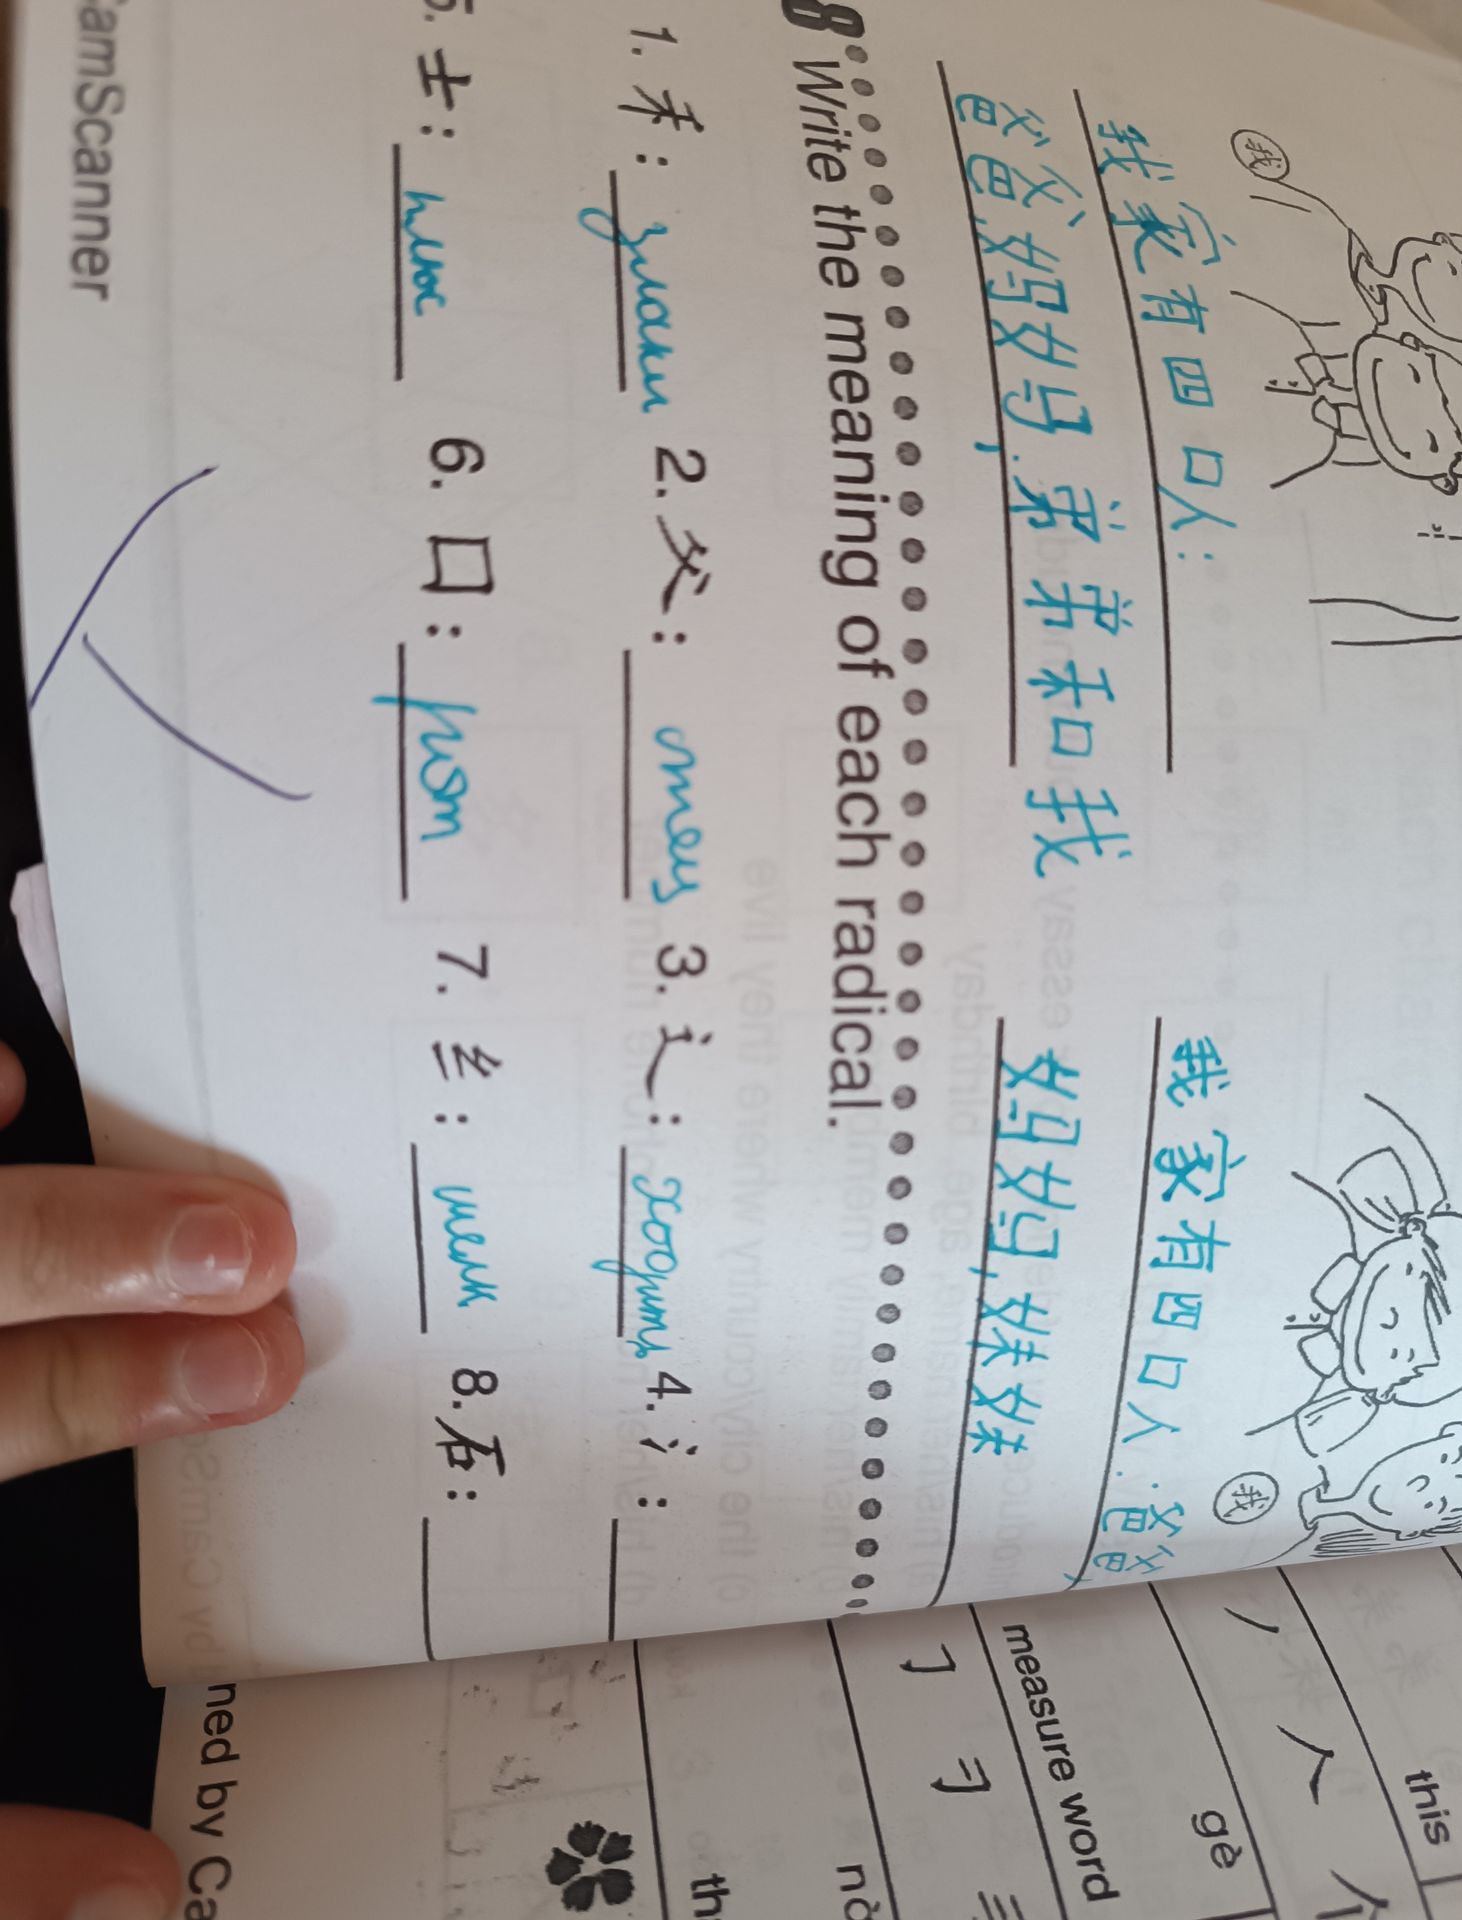 我
我家有四口人:
爸爸,妈妈,弟弟和我
我
我家有四口人:爸爸,
妈妈,妹妹
8 Write the meaning of each radical.
1. 禾: злаки 2. 父: отец 3. 辶: ходить 4. 氵:
5. 纟: шелк 6. 口: рот 7. 纟: шелк 8. 石:
amScanner
ned by Ca
this
gè
measure word
nà
th